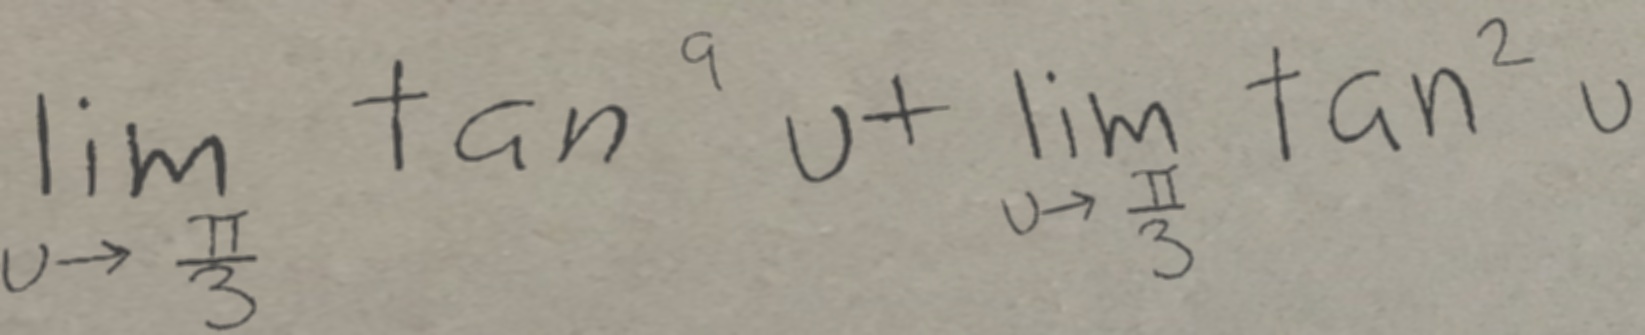 \lim_{u \to \frac{\pi}{3}} \tan^9 u + \lim_{u \to \frac{\pi}{3}} \tan^2 u